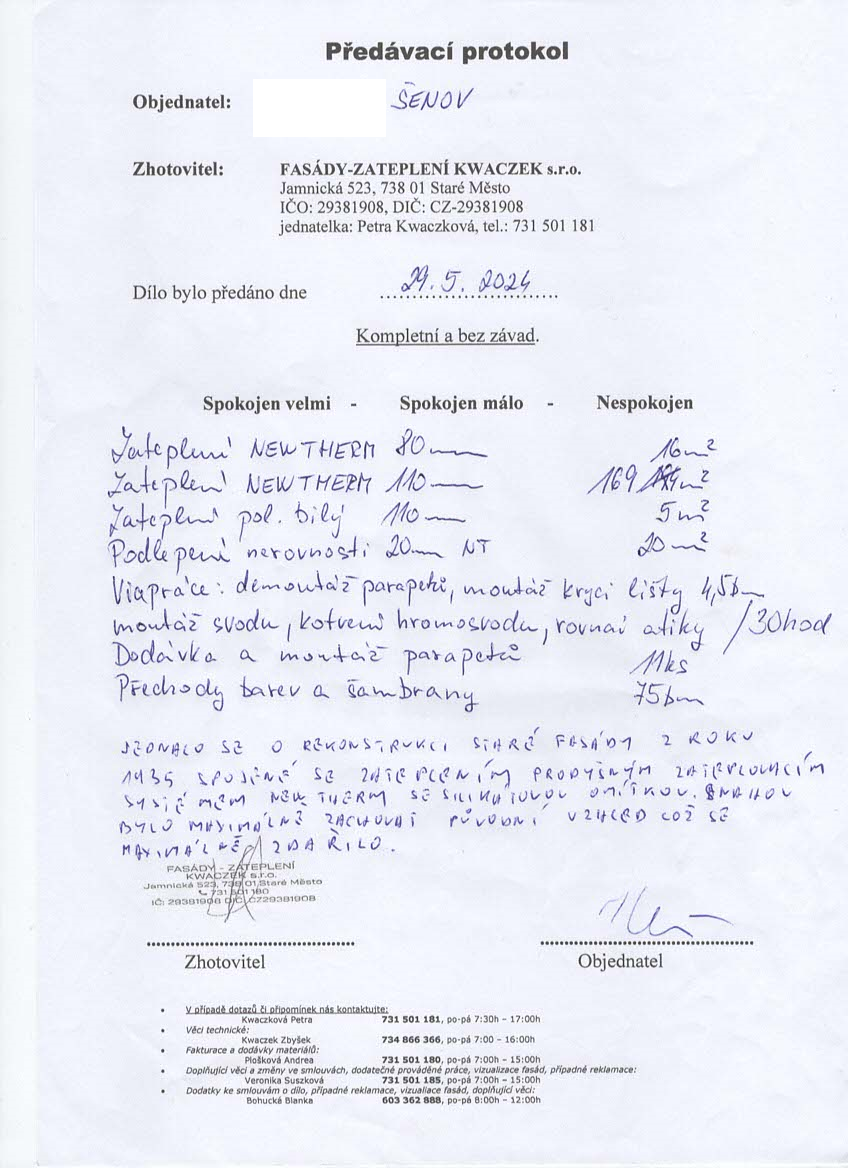 Předávací protokol
Objednatel: ŠENOV
Zhotovitel: FASÁDY-ZATEPLENÍ KWACZEK s.r.o.
Jamnická 523, 738 01 Staré Město
IČO: 29381908, DIČ: CZ-29381908
jednatelka: Petra Kwaczková, tel.: 731 501 181
Dílo bylo předáno dne 29.5.2024
Kompletní a bez závad.
Spokojen velmi - Spokojen málo - Nespokojen
Zateplení NEWTHERM 80mm 16m²
Zateplení NEWTHERM 110mm 169 m²
Zateplení pol. bílý 110mm 5m²
Podlepení nerovnosti 20mm NT 20m²
Vícepráce: demontáž parapetů, montáž krycí lišty 4,5bm
montáž svodu, kotvení hromosvodu, rovnání atiky /30hod
Dodávka a montáž parapetů 11ks
Přechody barev a šambrany 75bm
JEDNALO SE O REKONSTRUKCI STARÉ FASÁDY Z ROKU
1935 SPOJENÉ SE ZATEPLENÍM PRODYŠNÝM ZATEPLOVACÍM
SYSTÉMEM NEW THERM SE SILIKÁTOVOU OMÍTKOU. SNAHOU
BYLO MAXIMÁLNĚ ZACHOVAT PŮVODNÍ VZHLED COŽ SE
MAXIMÁLNĚ ZDAŘILO.
FASÁDY - ZATEPLENÍ
KWACZEK s.r.o.
Jamnická 523, 739 01 Staré Město
731 501 180
IČ: 29381908 DIČ: CZ29381908
Zhotovitel Objednatel
• V případě dotazů či připomínek nás kontaktujte:
Kwaczková Petra 731 501 181, po-pá 7:30h – 17:00h
• Věci technické:
Kwaczek Zbyšek 734 866 366, po-pá 7:00 – 16:00h
• Fakturace a dodávky materiálů:
Plošková Andrea 731 501 180, po-pá 7:00h – 15:00h
• Doplňující věci a změny ve smlouvách, dodatečné prováděné práce, vizualizace fasád, případné reklamace:
Veronika Suszková 731 501 185, po-pá 7:00h – 15:00h
• Dodatky ke smlouvám o dílo, případné reklamace, vizualizace fasád, doplňující věci:
Bohucká Blanka 603 362 888, po-pá 8:00h – 12:00h